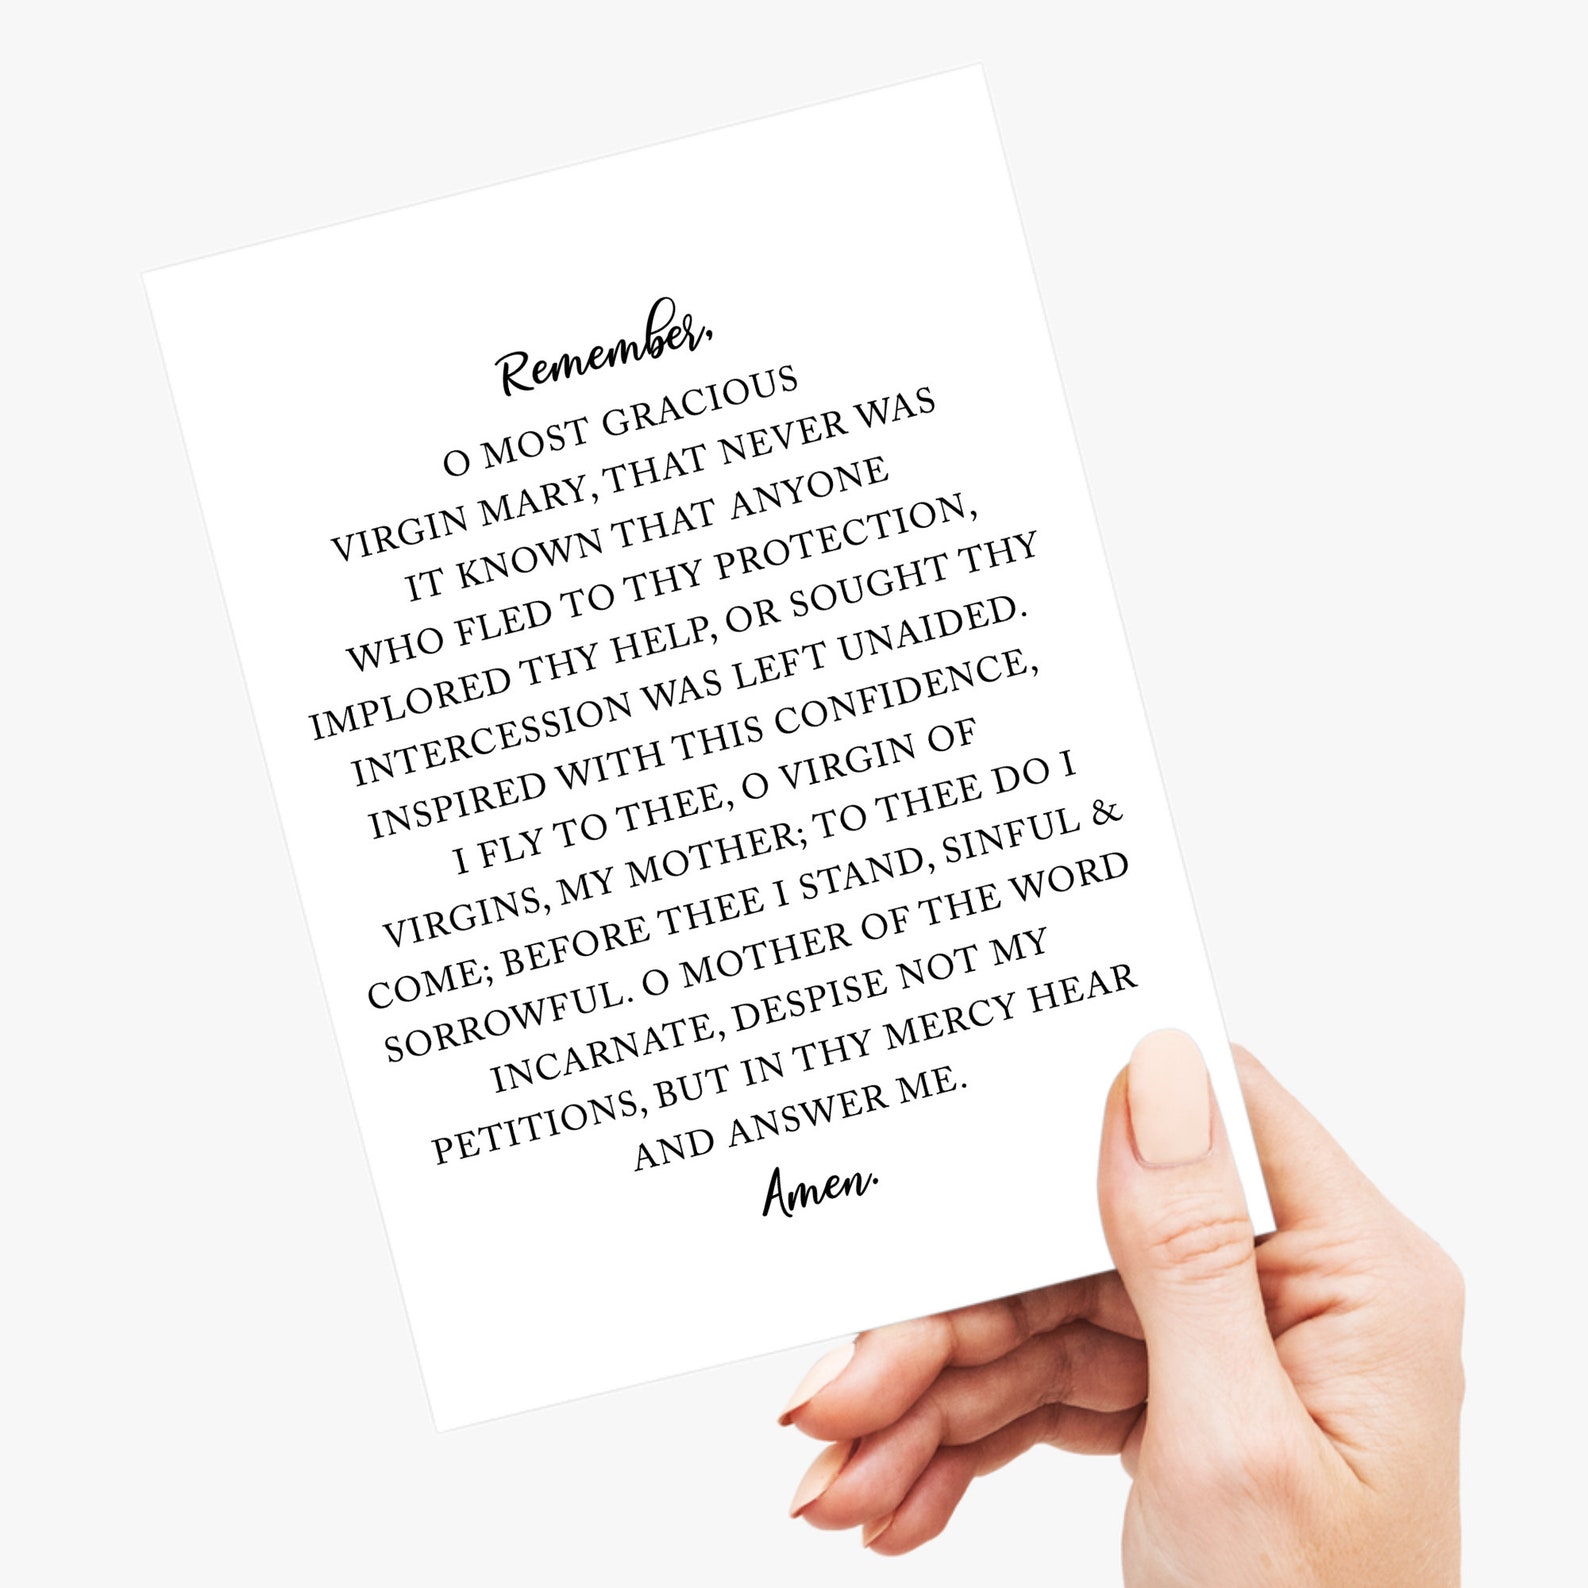 Remember,
O MOST GRACIOUS
VIRGIN MARY, THAT NEVER WAS
IT KNOWN THAT ANYONE
WHO FLED TO THY PROTECTION,
IMPLORED THY HELP, OR SOUGHT THY
INTERCESSION WAS LEFT UNAIDED.
INSPIRED WITH THIS CONFIDENCE,
I FLY TO THEE, O VIRGIN OF
VIRGINS, MY MOTHER; TO THEE DO I
COME; BEFORE THEE I STAND, SINFUL &
SORROWFUL. O MOTHER OF THE WORD
INCARNATE, DESPISE NOT MY
PETITIONS, BUT IN THY MERCY HEAR
AND ANSWER ME.
Amen.